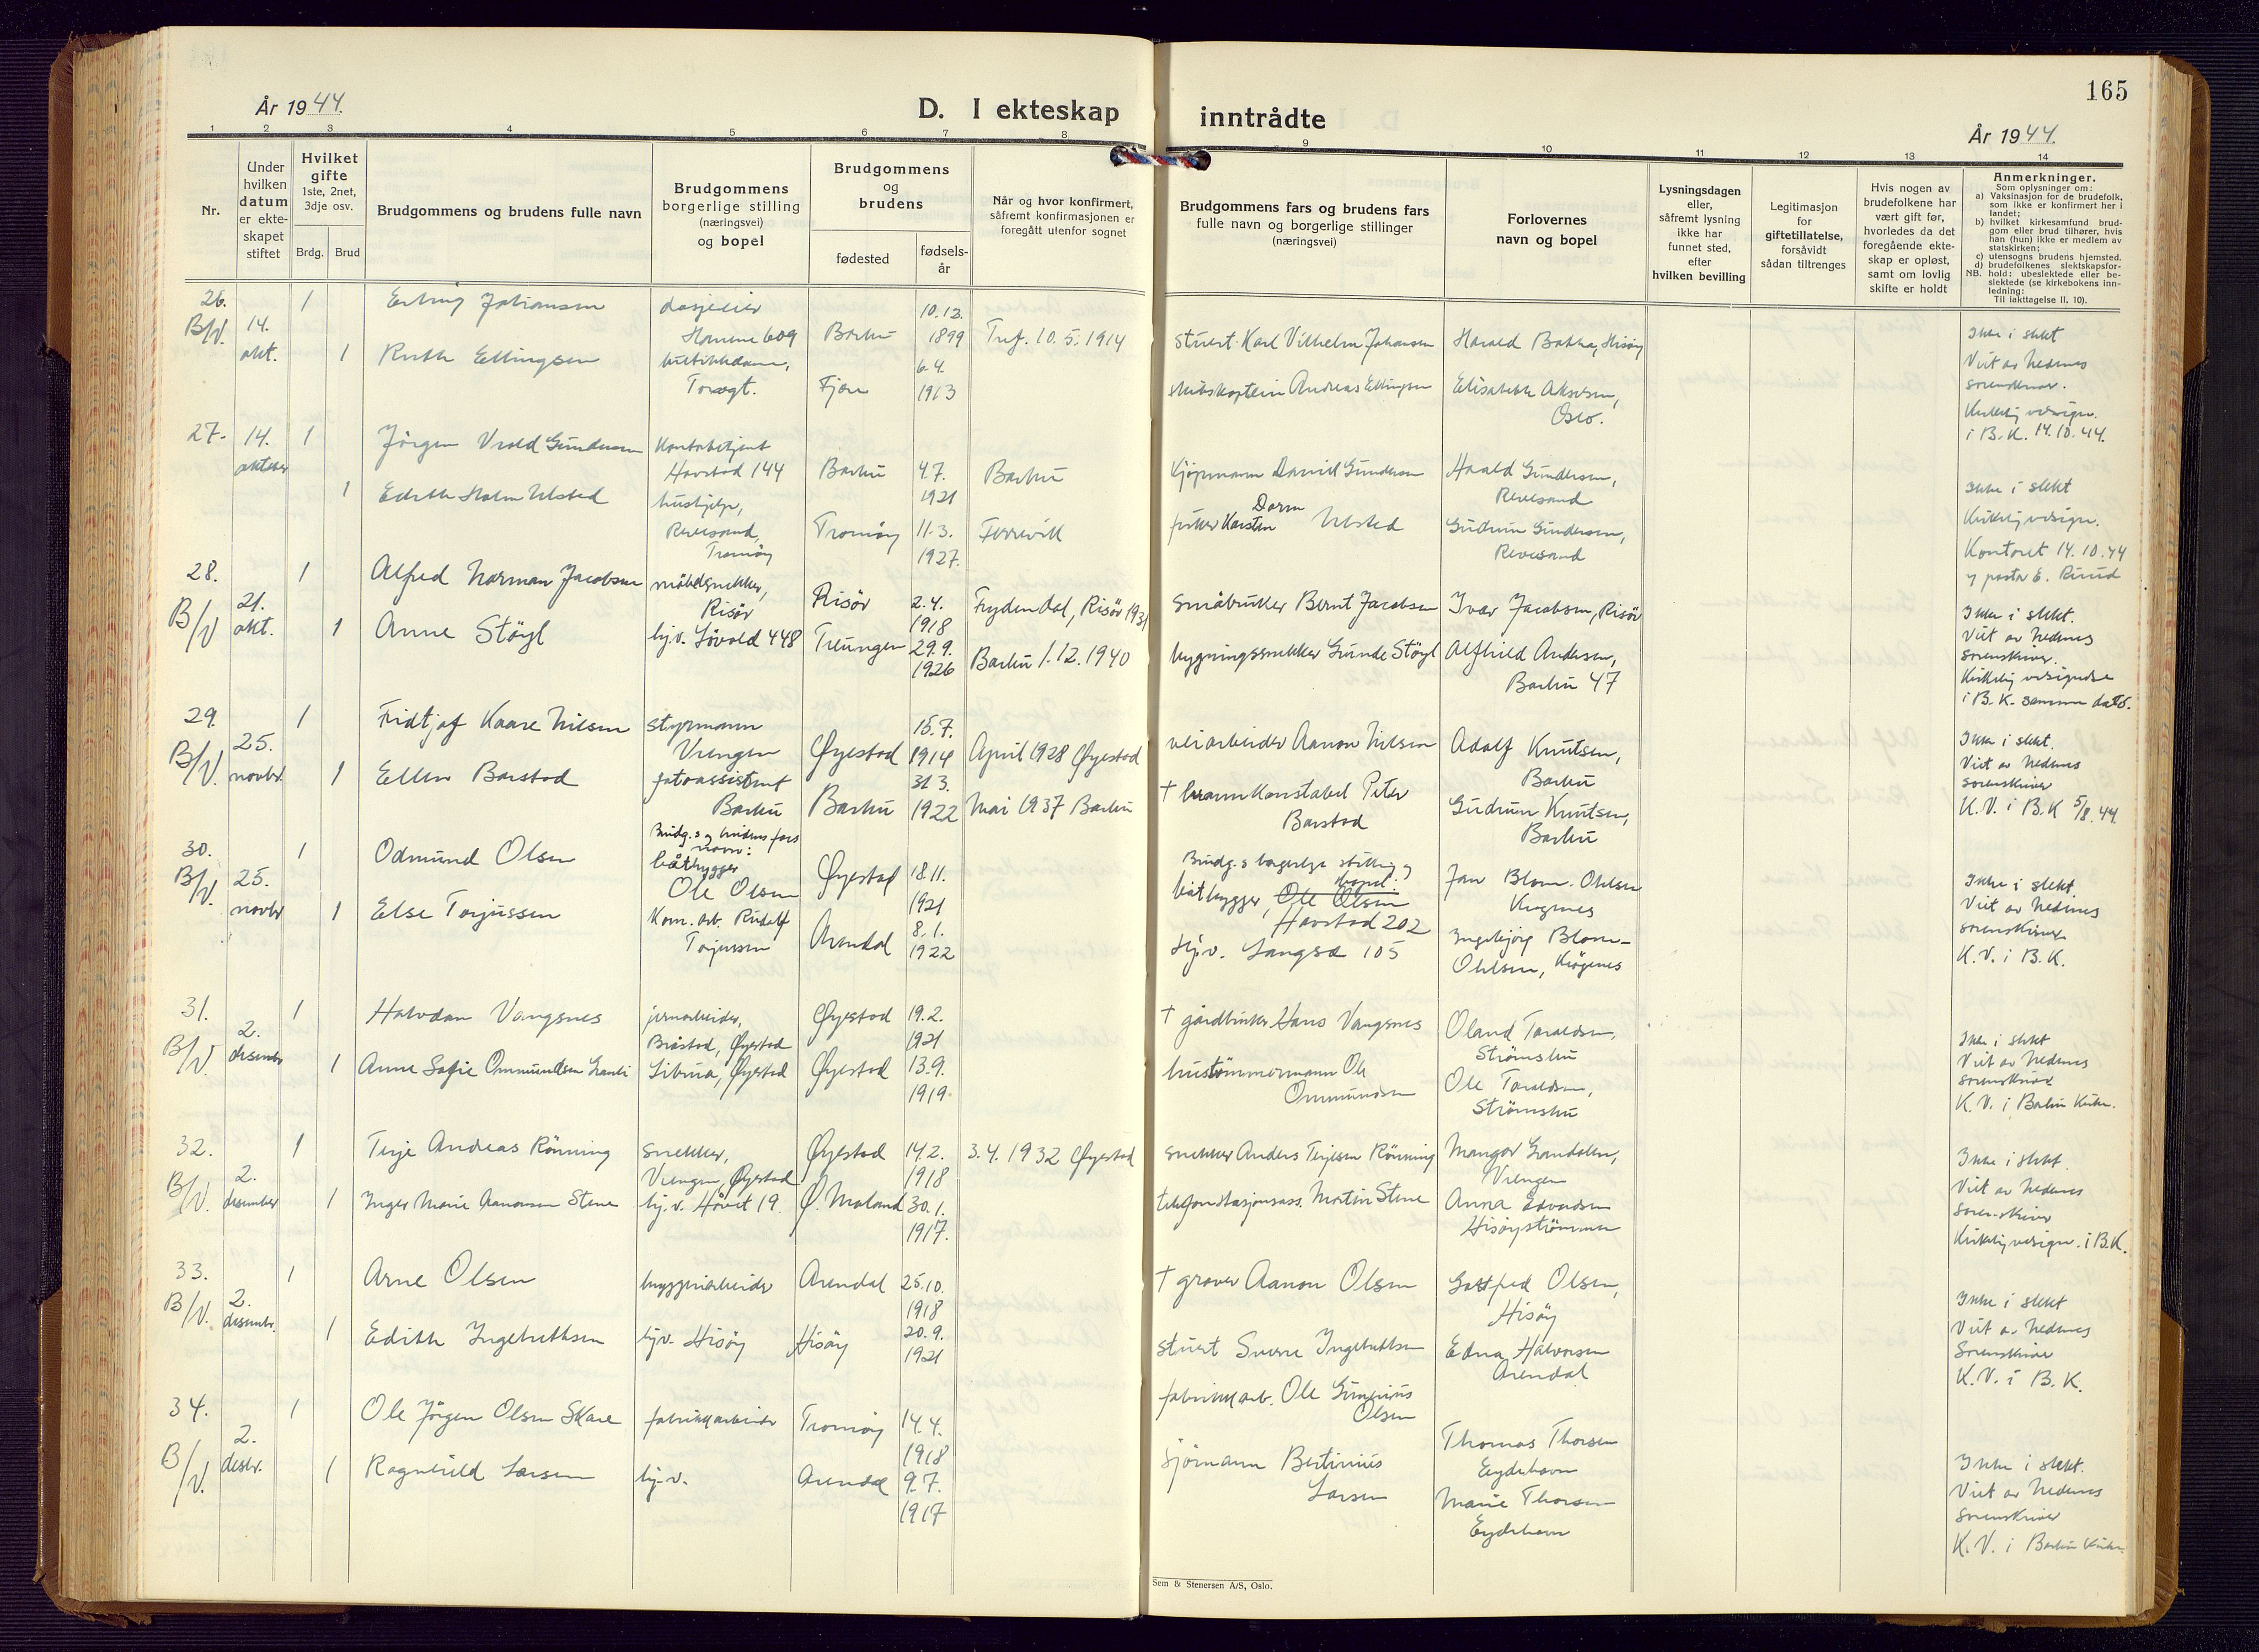 165
År 1944.
D. I ekteskap inntrådte
År 1944.
1 2 3 4 5 6 7 8 9 10 11 12 13 14
Nr.
Under hvilken datum er ekteskapet stiftet
Hvilket gifte 1ste, 2net, 3dje osv.
Brdg. Brud
Brudgommens og brudens fulle navn
Brudgommens borgerlige stilling (næringsvei) og bopel
Brudgommens og brudens
fødested
fødsels-år
Når og hvor konfirmert, såfremt konfirmasjonen er foregått utenfor sognet
Brudgommens fars og brudens fars fulle navn og borgerlige stillinger (næringsvei)
Forlovernes navn og bopel
Lysningsdagen eller, såfremt lysning ikke har funnet sted, efter hvilken bevilling
Legitimasjon for giftetillatelse, forsåvidt sådan tiltrenges
Hvis nogen av brudefolkene har vært gift før, hvorledes da det foregående ekteskap er opløst, samt om lovlig skifte er holdt
Anmerkninger.
Som oplysninger om:
a) Vaksinasjon for de brudefolk, som ikke er konfirmert her i landet;
b) hvilket kirkesamfund brudgom eller brud tilhører, hvis han (hun) ikke er medlem av statskirken;
c) utensogns brudens hjemsted.
d) brudefolkenes slektskapsforhold: ubeslektede eller beslektede (se kirkebokens innledning:
NB. Til iakttagelse II. 10).
26. B/V. 14. okt. 1 Erling Johansen
Homme 609 Barbu 10.12. 1899 10.5.1914
stuert Karl Vilhelm Johansen
Harald Bakka, Hisøy
1 Ruth Ellingsen
Fjære 6.4. 1913
skibskaptein Andreas Ellingsen
Elisabeth Aksesen, Oslo.
Ikke i slekt
Viet av Nedenes sorenskriver.
Kirkelig velsign. i B.K. 14.10.44.
27. 14. oktober 1 Jörgen Vrold Gundersen
Kontorbetjent Havstad 144 Barbu 4.7. 1921 Barbu
Kjöpmann David Gundersen
Harald Gundersen, Revesand
1 Edith Holm Ulsted
hushjelp, Revesand, Tromöy
Tromöy 11.3. 1927. Færvik
fisker Karsten Dorm Ulsted
Gudrun Gundersen, Revesand
Ikke i slekt
Kirkelig velsign.
Kontoret 14.10.44
v/ pastor E. Ruud
28. B/V 21. okt. 1 Alfred Norman Jacobsen
möbelsnekker, Risör
Risör 2.4. 1918 Frydendal, Risör 1931
småbruker Bernt Jacobsen
Ivar Jacobsen, Risör
1 Anne Stöyl
hj.v. Lövold 448 Treungen 29.9. 1926 Barbu 1.12.1940
bygningssnekker Gunde Stöyl
Alfhild Andersen, Barbu 47
Ikke i slekt.
Viet av Nedenes sorenskriver.
Kirkelig velsignelse i B.K. samme dato.
29. B/V. 25. novbr. 1 Fridtjof Kaare Nilsen
styrmann Vrengen
Øyestad 15.7. 1914 April 1928 Øyestad
veiarbeider Aanon Nilsen
Adolf Knutsen, Barbu
1 Ellen Barstad
fotoassistent Barbu
Barbu 31 3. 1922 Mai 1937 Barbu
† brannkonstabel Peter Barstad
Gudrun Knutsen, Barbu
Ikke i slekt.
Viet av Nedenes sorenskriver
K.V. i B.K 5/8.44.
30. B/V. 25. novbr 1 Odmund Olsen
Brudg.s og brudens fars navn:
båtbygger Ole Olsen
Øyestad 18.11. 1921
Brudg.s borgerlige stilling og bopel:
båtbygger, Ole Olsen
Havstad 202
Jan Blom-Ohlsen
1 Else Torjussen
Kom. arb. Rudolf Torjussen
Arendal 8.1. 1922
Hj.v. Langsæ 105
Ingebjörg Blom-Ohlsen, Krögenes
Ikke i slekt
Viet av Nedenes sorenskriver
K.V. i B.K.
31. B/V. 2. desembr 1 Halvdan Vangsnes
jernarbeider, Bråstad, Øyestad
Øyestad 19.2. 1921
† gårdbruker Hans Vangsnes
Oland Taraldsen, Strömsbu
1 Anne Sofie Ommundsen
Libma, Øyestad
Øyestad 13.9. 1919.
hustömmermann Ole Ommundsen
Ole Taraldsen, Strömsbu
Ikke i slekt
Viet av Nedenes sorenskriver
K.V. i Barbu Kirke.
32. B/V. 2. desember 1 Terje Andreas Rönning
snekker, Vrengen, Øyestad
Øyestad 14.2. 1918 3.4.1932 Øyestad
snekker Anders Terjesen Rönning
Mangor Grandalen, Vrengen
1 Inger Marie Aanonsen Stene
hj.v. Håvet 19. Ø. Moland 30.1. 1917.
telefonstasjonsass. Martin Stene
Anna Edvardsen Hisöyströmmen
Ikke i slekt.
Viet av Nedenes sorenskriver
Kirkelig velsign. i B.K.
33. B/V. 2. desembr. 1 Arne Olsen
byggearbeider Arendal 25.10. 1918
† graver Aanon Olsen
Gottfred Olsen, Hisöy
1 Edith Ingebrethsen
hj.v. Hisöy Hisöy 20.9. 1921
stuert Sverre Ingebrethsen
Edna Halvorsen Arendal
Ikke i slekt
Viet av Nedenes sorenskriver
K.V. i B.K.
34. B/V. 2. desbr. 1 Ole Jörgen Olsen Skare
fabrikkarbeider Tromöy 14.4. 1918
fabrikkarb. Ole Gunerius Olsen
Thomas Thorsen Eydehavn
1 Ragnhild Larsen
hj.v. Arendal 9.7. 1917
Sjömann Bertinius Larsen
Marie Thorsen Eydehavn
Ikke i slekt.
Viet av Nedenes sorenskriver
K.V. i Barbu Kirke.
Sem & Stenersen A/S, Oslo.